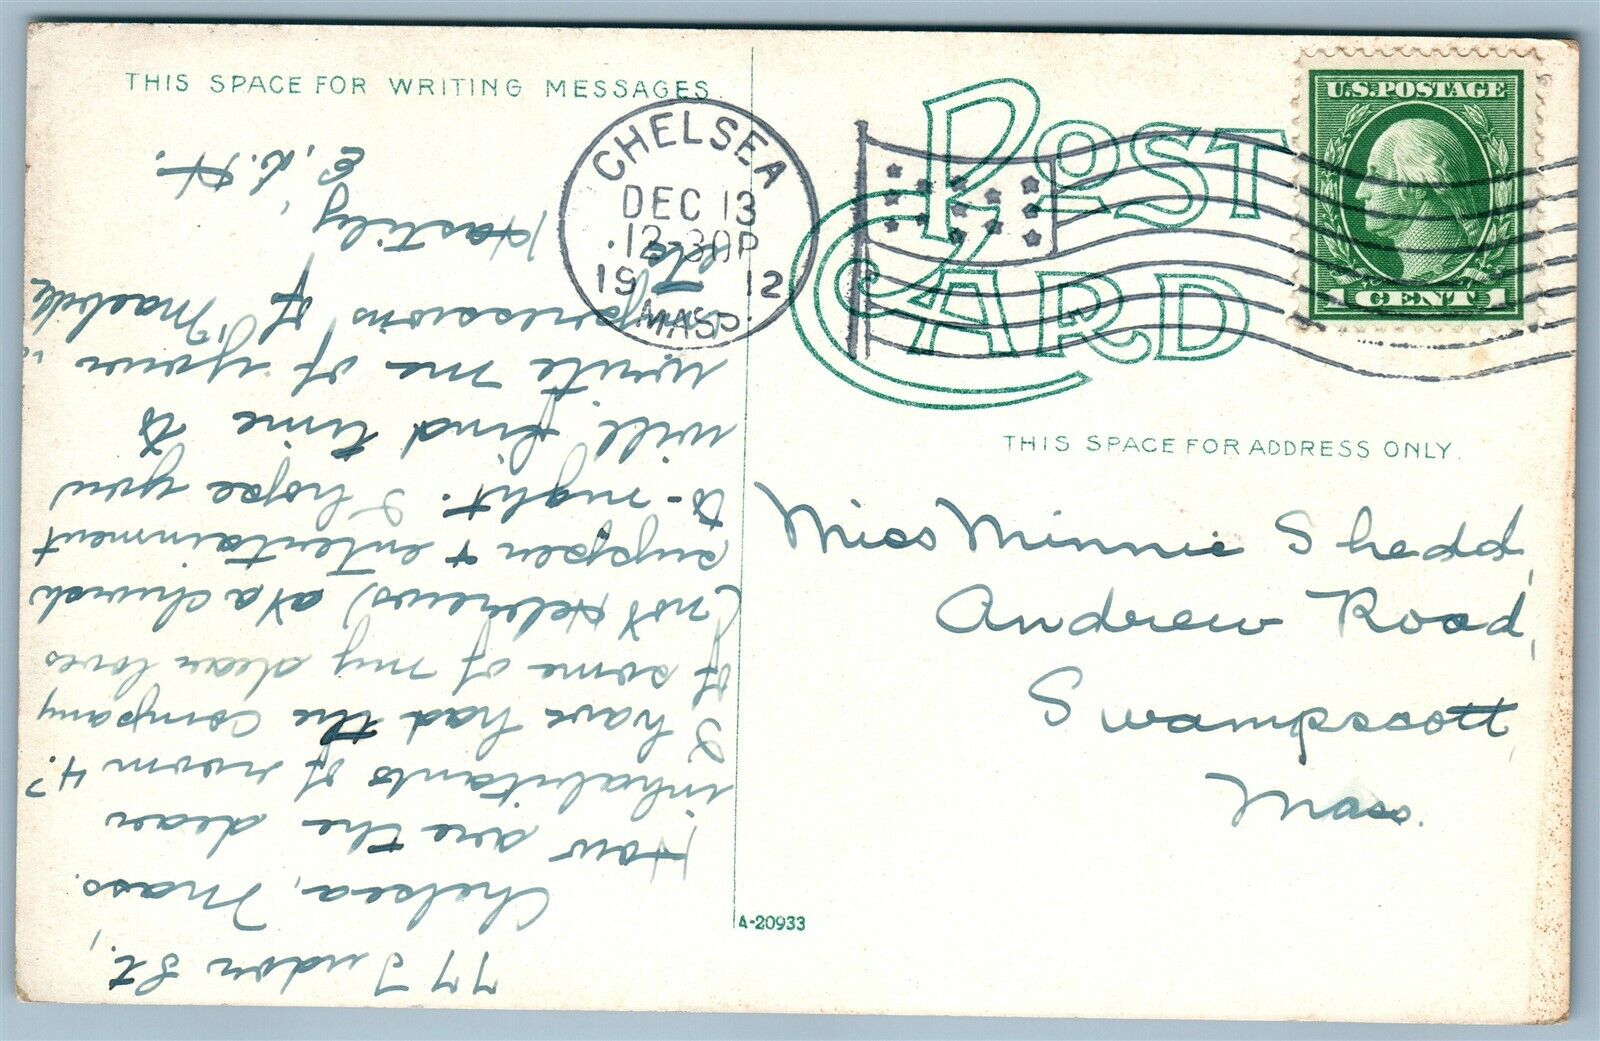 THIS SPACE FOR WRITING MESSAGES
CHELSEA
DEC 13
12-30P
1912
MASS.
POST
CARD
U.S.POSTAGE
1 CENT 1
THIS SPACE FOR ADDRESS ONLY.
Miss Minnie Shedd,
Andrew Road,
Swampscott,
Mass.
A-20933
77 Tudor St.,
Chelsea, Mass.
How are the dear
inhabitants of room 4?
I have had the company
of some of my dear loves
(not Hebrews) at a church
supper & entertainment
to-night. I hope you
will find time to
write me of your
impressions of "Macbeth"
Hastily,
E. L. H.